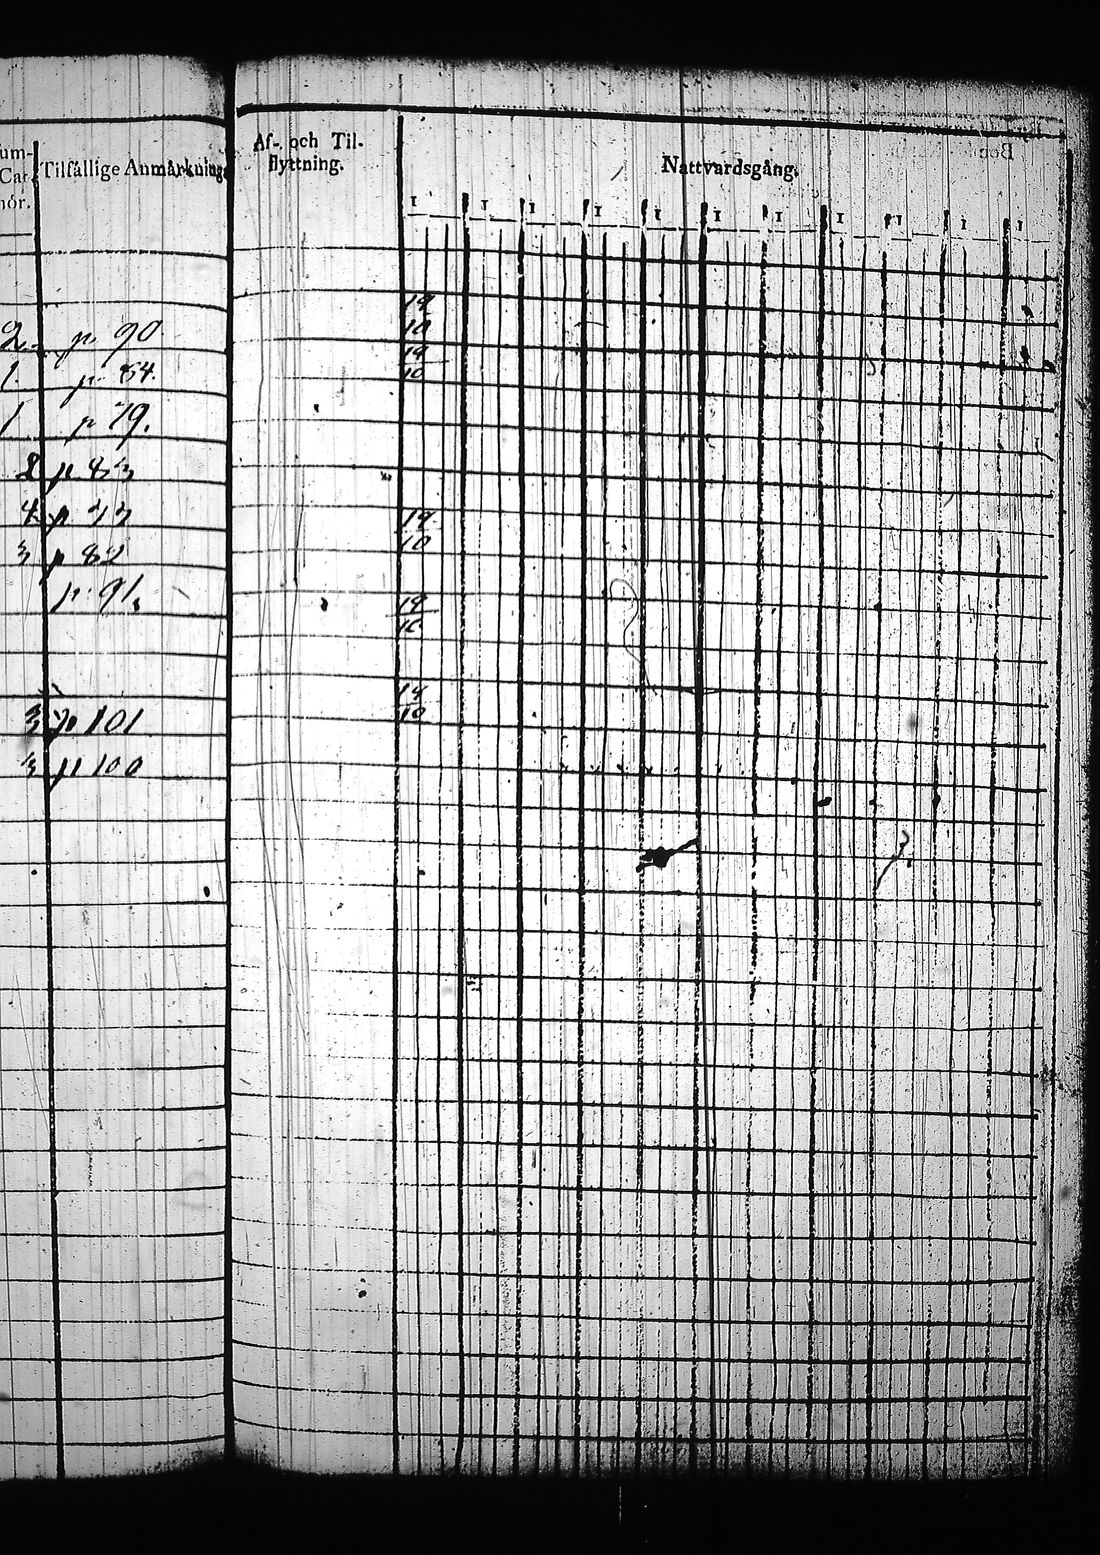 Tilfällige Anmärkning
Af- och Til-
flyttning.
Nattvardsgång.
1 1 1 1 1 1 1 1 1 1 1
2 p. 90
1 p. 84.
1 p 79.
2 p 83
4 p 77
3 p 82
p. 91.
3 p 101
3 p 100
19
10
19
10
19
10
19
10
19
10